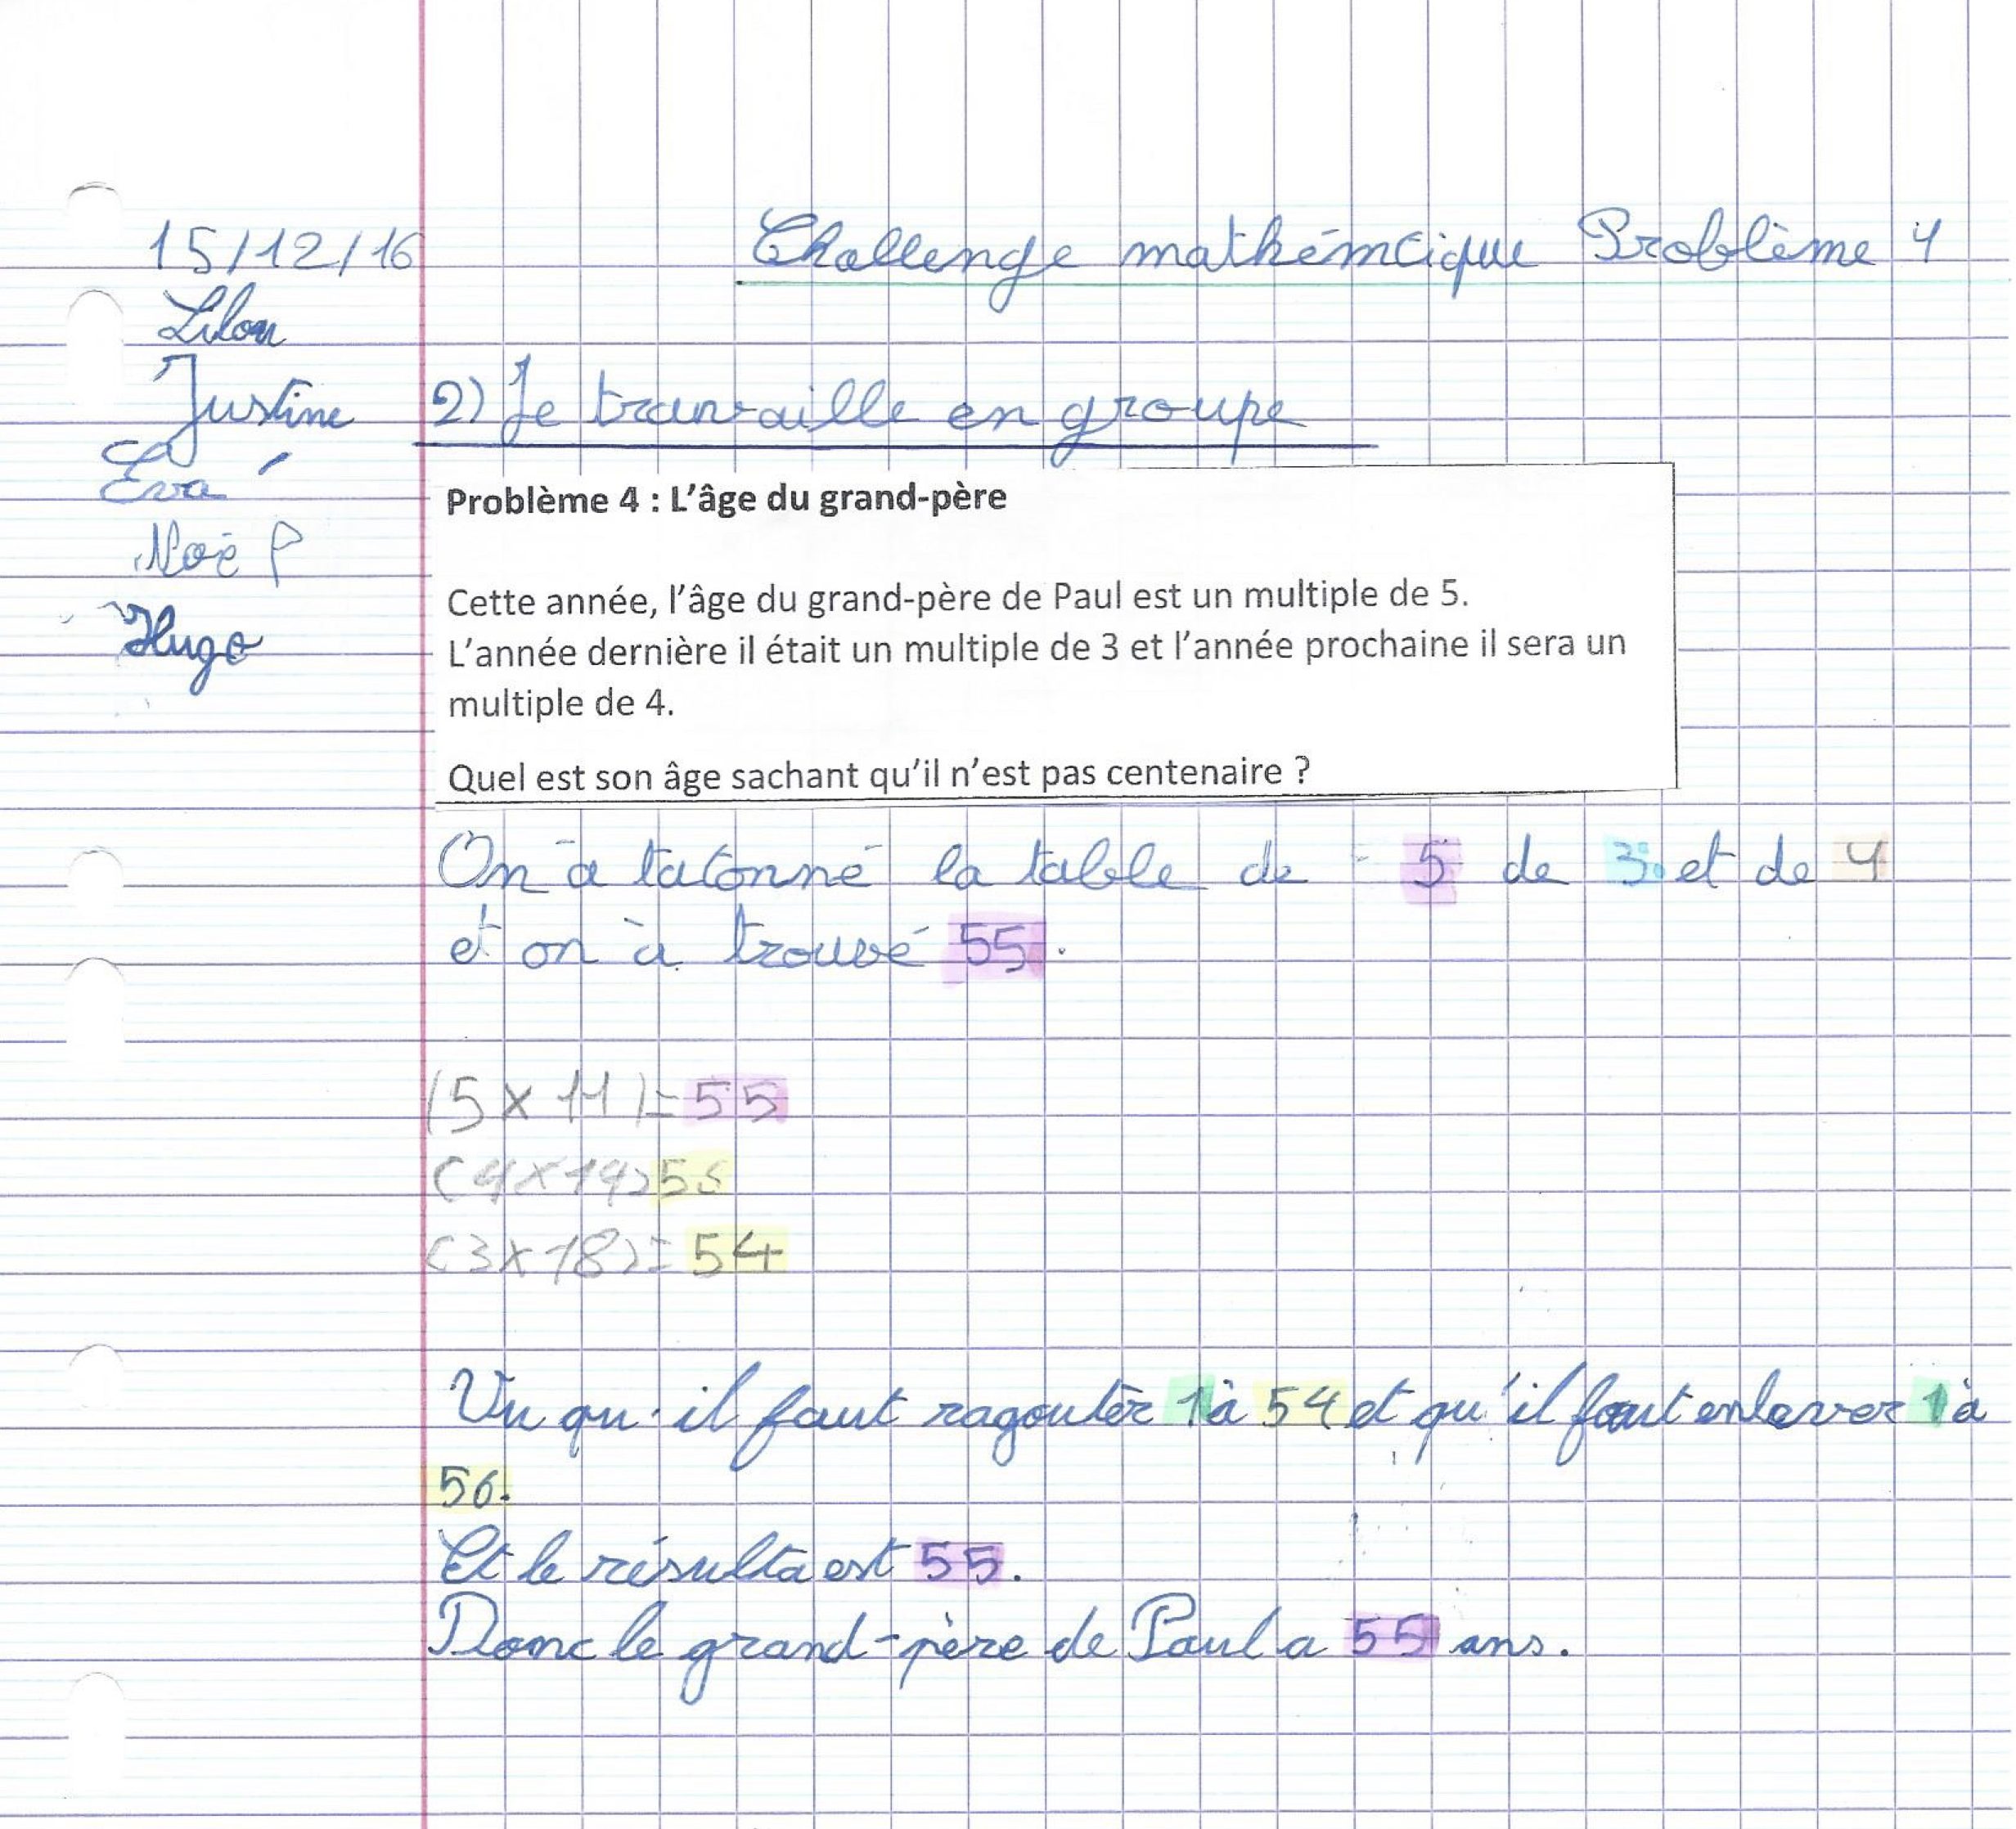 15/12/16 Challenge mathémcique Problème 4
Lilou
Justine 2) Je travaille en groupe
Eva
Problème 4 : L'âge du grand-père
Noé P
Cette année, l'âge du grand-père de Paul est un multiple de 5.
Hugo
L'année dernière il était un multiple de 3 et l'année prochaine il sera un
multiple de 4.
Quel est son âge sachant qu'il n'est pas centenaire ?
On à tatonné la table de 5 de 3 et de 4
et on à trouvé 55.
(5 x 11) = 55
(4x14)56
(3x18)= 54
Vu qu'il faut ragouter 1 à 54 et qu'il faut enlever 1 à
56.
Et le résulta est 55.
Donc le grand-père de Paul a 55 ans.